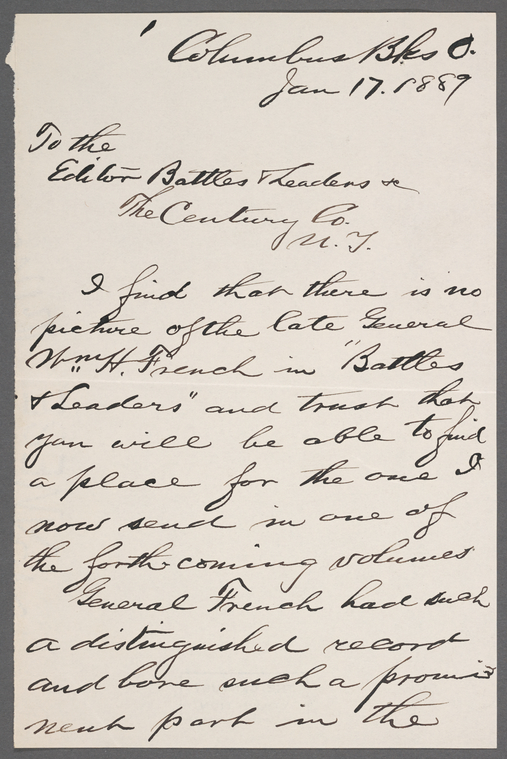 Columbus Bks O.
Jan 17. 1889
To the
Editor Battles & Leaders &
The Century Co.
N. Y.
I find that there is no
picture of the late General
Wm. H. French in "Battles
& Leaders" and trust that
you will be able to find
a place for the one I
now send in one of
the forth-coming volumes
General French had such
a distinguished record
and bore such a promi-
nent part in the